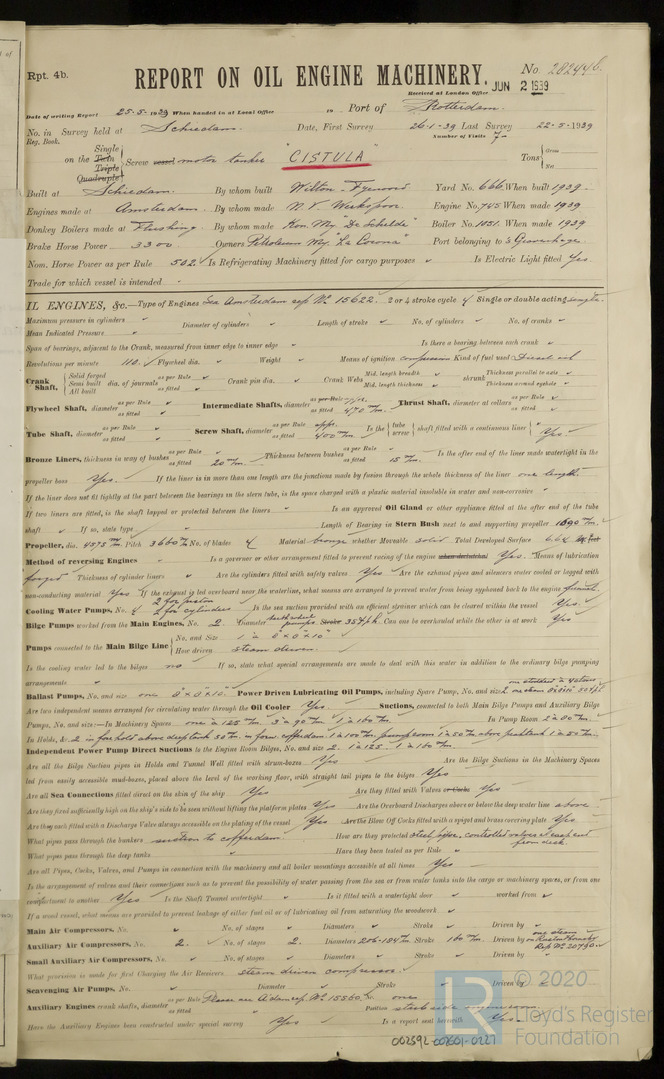 Rpt. 4b.
REPORT ON OIL ENGINE MACHINERY.
No. 28244b.
Received at London Office JUN 2 1939
Date of writing Report 25-5-1939 When handed in at Local Office 19 Port of Rotterdam.
No. in Survey held at Schiedam. Date, First Survey 26-1-39 Last Survey 22-5-1939
Reg. Book. Number of Visits 7-
Single
on the Twin Screw vessel motor tanker "CISTULA" Tons Gross
Triple Net
Quadruple
Built at Schiedam. By whom built Wilton-Fijenoord Yard No. 666 When built 1939-
Engines made at Amsterdam. By whom made N.V. Werkspoor. Engine No. 745 When made 1939
Donkey Boilers made at Flushing. By whom made Kon. My "De Schelde" Boiler No. 1051. When made 1939
Brake Horse Power 3300 Owners Petroleum My. "La Corona" Port belonging to 's Gravenhage.
Nom. Horse Power as per Rule 502. Is Refrigerating Machinery fitted for cargo purposes Is Electric Light fitted Yes.
Trade for which vessel is intended
IL ENGINES, &c.—Type of Engines See Amsterdam rep No 15622. 2 or 4 stroke cycle 4 Single or double acting single.
Maximum pressure in cylinders Diameter of cylinders Length of stroke No. of cylinders No. of cranks
Mean Indicated Pressure
Span of bearings, adjacent to the Crank, measured from inner edge to inner edge Is there a bearing between each crank
Revolutions per minute 110. Flywheel dia. Weight Means of ignition compression Kind of fuel used Diesel oil
Crank Shaft, Solid forged Semi built All built dia. of journals as per Rule as fitted Crank pin dia. Crank Webs Mid. length breadth Mid. length thickness shrunk Thickness parallel to axis Thickness around eyehole
Flywheel Shaft, diameter as per Rule as fitted Intermediate Shafts, diameter as per Rule as fitted 470 m/m. Thrust Shaft, diameter at collars as per Rule as fitted
Tube Shaft, diameter as per Rule as fitted Screw Shaft, diameter as per Rule appr. as fitted 400 m/m. Is the tube screw shaft fitted with a continuous liner Yes
Bronze Liners, thickness in way of bushes as per Rule as fitted 20 m/m. Thickness between bushes as per Rule as fitted 15 m/m. Is the after end of the liner made watertight in the
propeller boss Yes. If the liner is in more than one length are the junctions made by fusion through the whole thickness of the liner one length.
If the liner does not fit tightly at the part between the bearings in the stern tube, is the space charged with a plastic material insoluble in water and non-corrosive
If two liners are fitted, is the shaft lapped or protected between the liners Is an approved Oil Gland or other appliance fitted at the after end of the tube
shaft If so, state type Length of Bearing in Stern Bush next to and supporting propeller 1690 m/m.
Propeller, dia. 4575 m/m Pitch 3660 m/m No. of blades 4 Material bronze whether Moveable solid. Total Developed Surface
Method of reversing Engines Is a governor or other arrangement fitted to prevent racing of the engine when declutched Yes. Means of lubrication
forced Thickness of cylinder liners Are the cylinders fitted with safety valves Yes Are the exhaust pipes and silencers water cooled or lagged with
non-conducting material Yes If the exhaust is led overboard near the waterline, what means are arranged to prevent water from being syphoned back to the engine funnel.
Cooling Water Pumps, No. 4 2 for piston 2 for cylinders Is the sea suction provided with an efficient strainer which can be cleared within the vessel Yes.
Bilge Pumps worked from the Main Engines, No. 2 Diameter Stroke Can one be overhauled while the other is at work Yes
Pumps connected to the Main Bilge Line No. and Size 1 à 8"x8"x10"
How driven steam driven.
Is the cooling water led to the bilges no If so, state what special arrangements are made to deal with this water in addition to the ordinary bilge pumping
arrangements
Ballast Pumps, No. and size one 8"x8"x10" Power Driven Lubricating Oil Pumps, including Spare Pump, No. and size
Are two independent means arranged for circulating water through the Oil Cooler Yes. Suctions, connected to both Main Bilge Pumps and Auxiliary Bilge
Pumps, No. and size:—In Machinery Spaces one à 125 m/m. 3 à 90 m/m. 1 à 160 m/m. In Pump Room 2 à 80 m/m.
In Holds, &c. 2 in forehold above deeptank 50 m/m. in forw. cofferdam 1 à 100 m/m. pumproom 1 à 50 m/m. above peaktank 1 à 50 m/m.
Independent Power Pump Direct Suctions to the Engine Room Bilges, No. and size 2. 1 à 125 1 à 160 m/m.
Are all the Bilge Suction pipes in Holds and Tunnel Well fitted with strum-boxes Yes Are the Bilge Suctions in the Machinery Spaces
led from easily accessible mud-boxes, placed above the level of the working floor, with straight tail pipes to the bilges Yes
Are all Sea Connections fitted direct on the skin of the ship Yes Are they fitted with Valves or Cocks Yes
Are they fixed sufficiently high on the ship's side to be seen without lifting the platform plates Yes Are the Overboard Discharges above or below the deep water line above.
Are they each fitted with a Discharge Valve always accessible on the plating of the vessel Yes Are the Blow Off Cocks fitted with a spigot and brass covering plate Yes
What pipes pass through the bunkers suction to cofferdam. How are they protected steel pipes, controlled valves at each end from deck.
What pipes pass through the deep tanks Have they been tested as per Rule
Are all Pipes, Cocks, Valves, and Pumps in connection with the machinery and all boiler mountings accessible at all times Yes
Is the arrangement of valves and their connections such as to prevent the possibility of water passing from the sea or from water tanks into the cargo or machinery spaces, or from one
compartment to another Yes Is the Shaft Tunnel watertight Is it fitted with a watertight door worked from
If a wood vessel, what means are provided to prevent leakage of either fuel oil or of lubricating oil from saturating the woodwork
Main Air Compressors, No. No. of stages Diameters Stroke Driven by
Auxiliary Air Compressors, No. 2. No. of stages 2. Diameters 206-184 m/m. Stroke 160 m/m. Driven by one steam
Small Auxiliary Air Compressors, No. No. of stages Diameters Stroke Driven by
What provision is made for first Charging the Air Receivers steam driven compressor.
Scavenging Air Pumps, No. Diameter Stroke Driven by
Auxiliary Engines crank shafts, diameter as per Rule Please see Adam rep. No 15560. as fitted Position
Have the Auxiliary Engines been constructed under special survey Yes Is a report sent herewith Yes.
© 2020
LR
Lloyd's Register
Foundation
002592-002601-0227